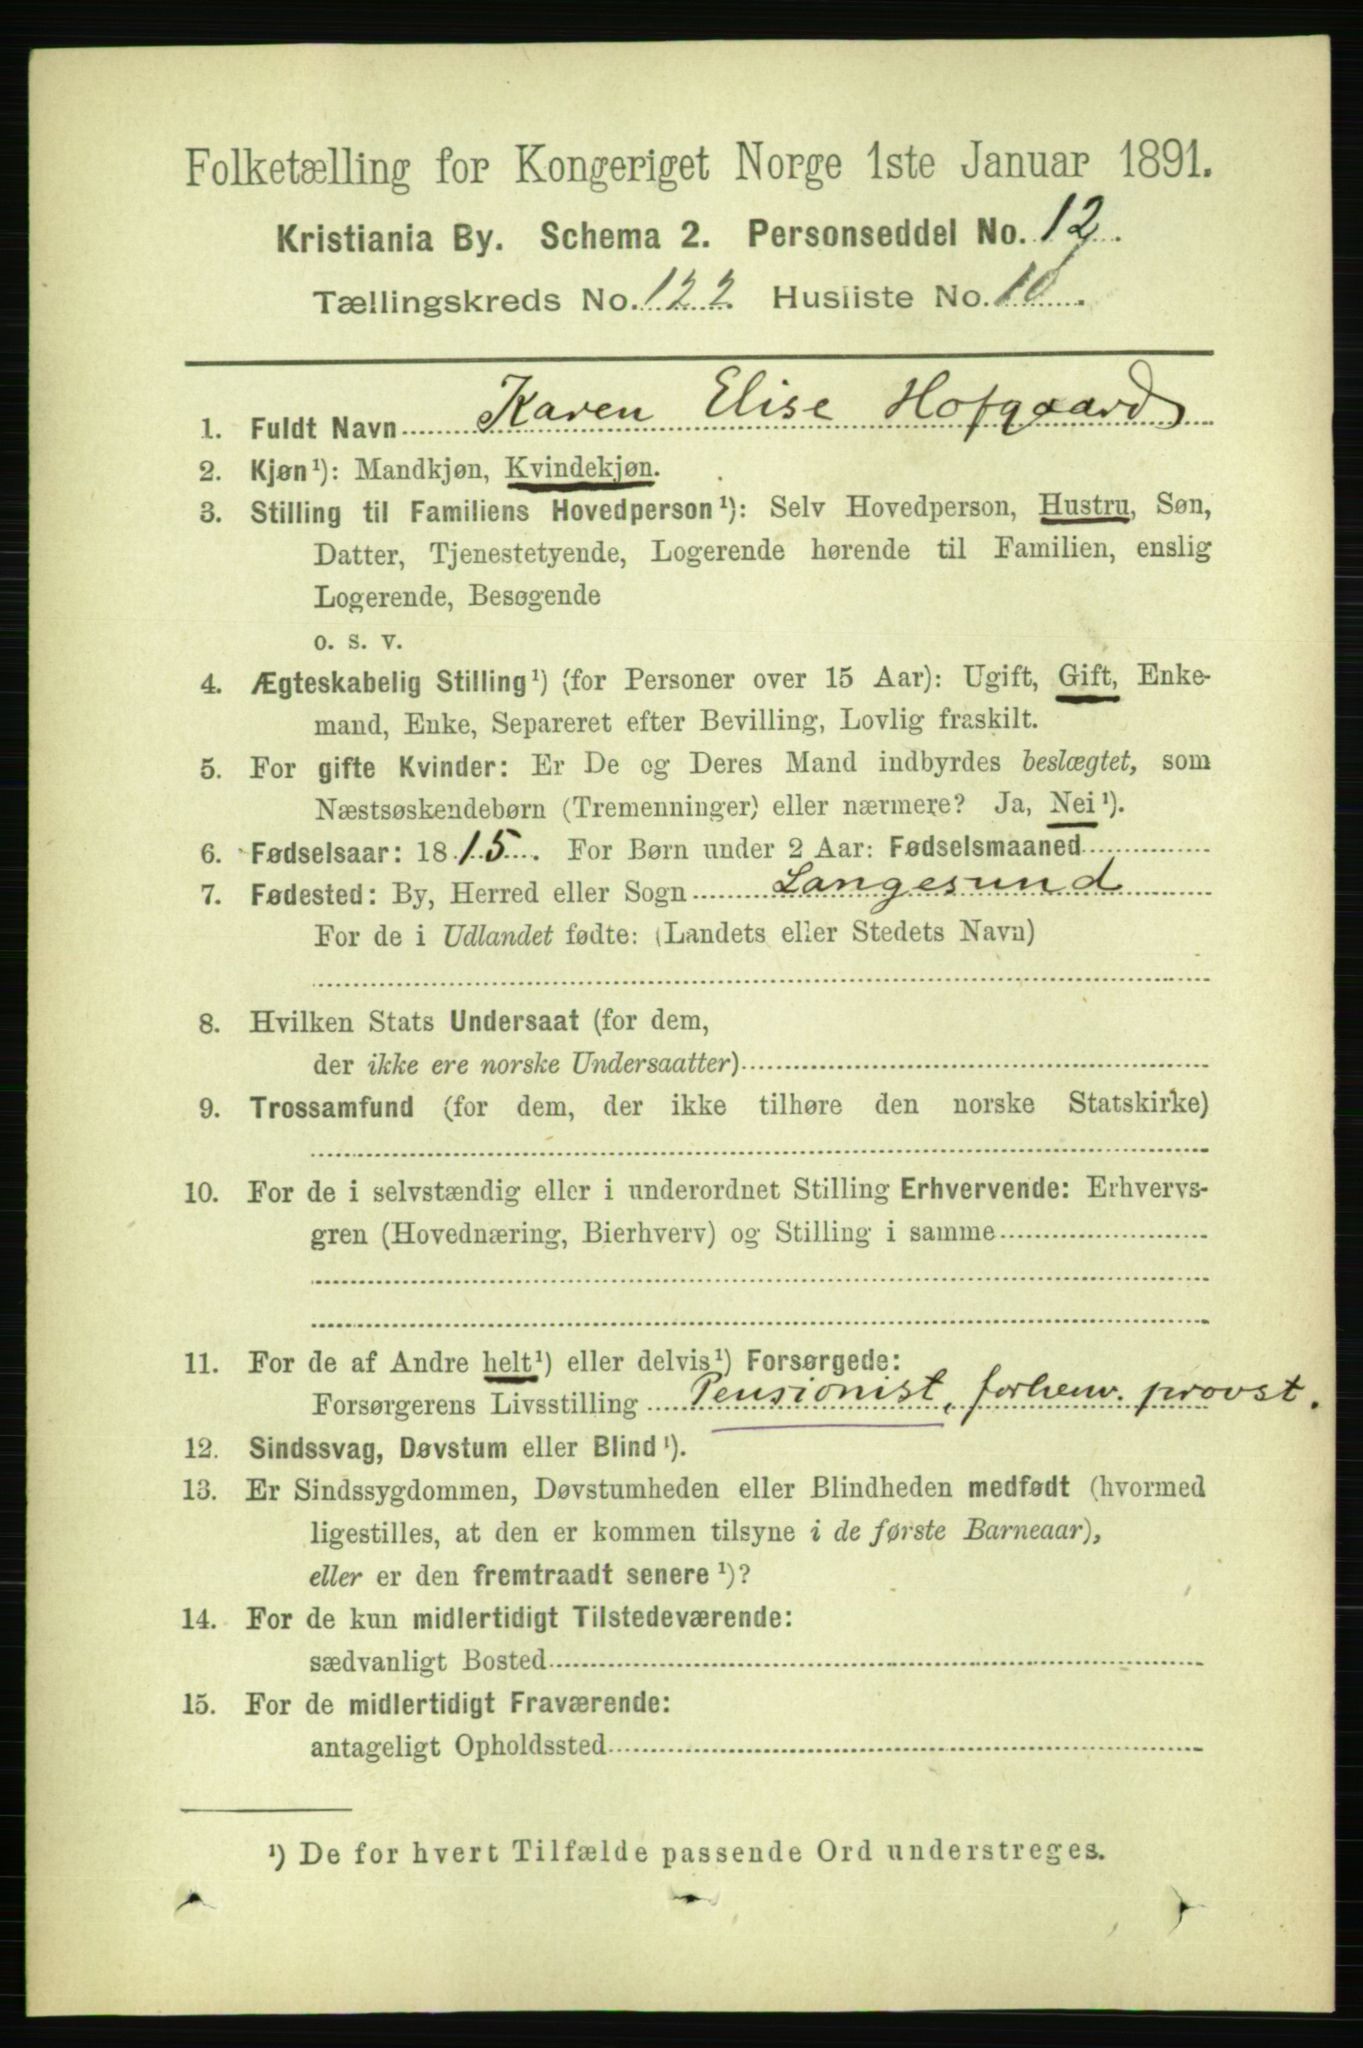 Folketælling for Kongeriget Norge 1ste Januar 1891.
Kristiania By. Schema 2. Personseddel No. 12.
Tællingskreds No. 122 Husliste No. 10.
1. Fuldt Navn Karen Elise Hofgaard
2. Kjøn¹): Mandkjøn, Kvindekjøn.
3. Stilling til Familiens Hovedperson¹): Selv Hovedperson, Hustru, Søn,
Datter, Tjenestetyende, Logerende hørende til Familien, enslig
Logerende, Besøgende
o. s. v.
4. Ægteskabelig Stilling¹) (for Personer over 15 Aar): Ugift, Gift, Enke-
mand, Enke, Separeret efter Bevilling, Lovlig fraskilt.
5. For gifte Kvinder: Er De og Deres Mand indbyrdes beslægtet, som
Næstsøskendebørn (Tremenninger) eller nærmere? Ja, Nei¹).
6. Fødselsaar: 1815. For Børn under 2 Aar: Fødselsmaaned
7. Fødested: By, Herred eller Sogn Langesund
For de i Udlandet fødte: (Landets eller Stedets Navn)
8. Hvilken Stats Undersaat (for dem,
der ikke ere norske Undersaatter)
9. Trossamfund (for dem, der ikke tilhøre den norske Statskirke)
10. For de i selvstændig eller i underordnet Stilling Erhvervende: Erhvervs-
gren (Hovednæring, Bierhverv) og Stilling i samme
11. For de af Andre helt¹) eller delvis¹) Forsørgede:
Forsørgerens Livsstilling Pensionist, forhenv. provst.
12. Sindssvag, Døvstum eller Blind¹).
13. Er Sindssygdommen, Døvstumheden eller Blindheden medfødt (hvormed
ligestilles, at den er kommen tilsyne i de første Barneaar),
eller er den fremtraadt senere¹)?
14. For de kun midlertidigt Tilstedeværende:
sædvanligt Bosted
15. For de midlertidigt Fraværende:
antageligt Opholdssted
¹) De for hvert Tilfælde passende Ord understreges.